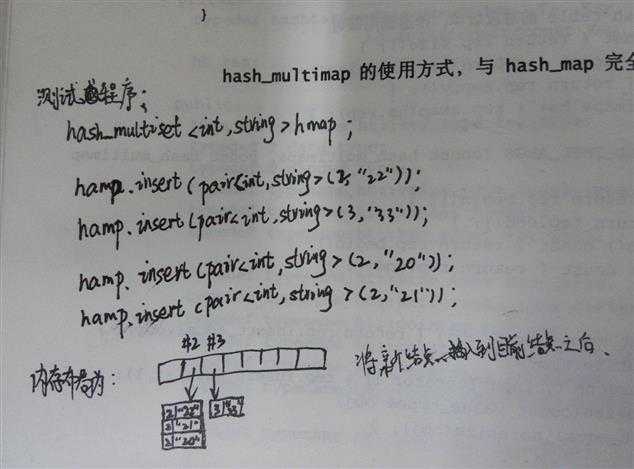 }
hash_multimap 的使用方式，与 hash_map 完全
测试程序：
hash_multiset <int,string> hmap ;
hamp.insert (pair<int,string>(2,"22"));
hamp.insert (pair<int,string>(3,"33"));
hamp.insert (pair<int,string>(2,"20"));
hamp.insert (pair<int,string>(2,"21"));
#2 #3
内存布局为：
将新结点插入到目前结点之后.
2 "22" 3 "33"
2 "21"
2 "20"